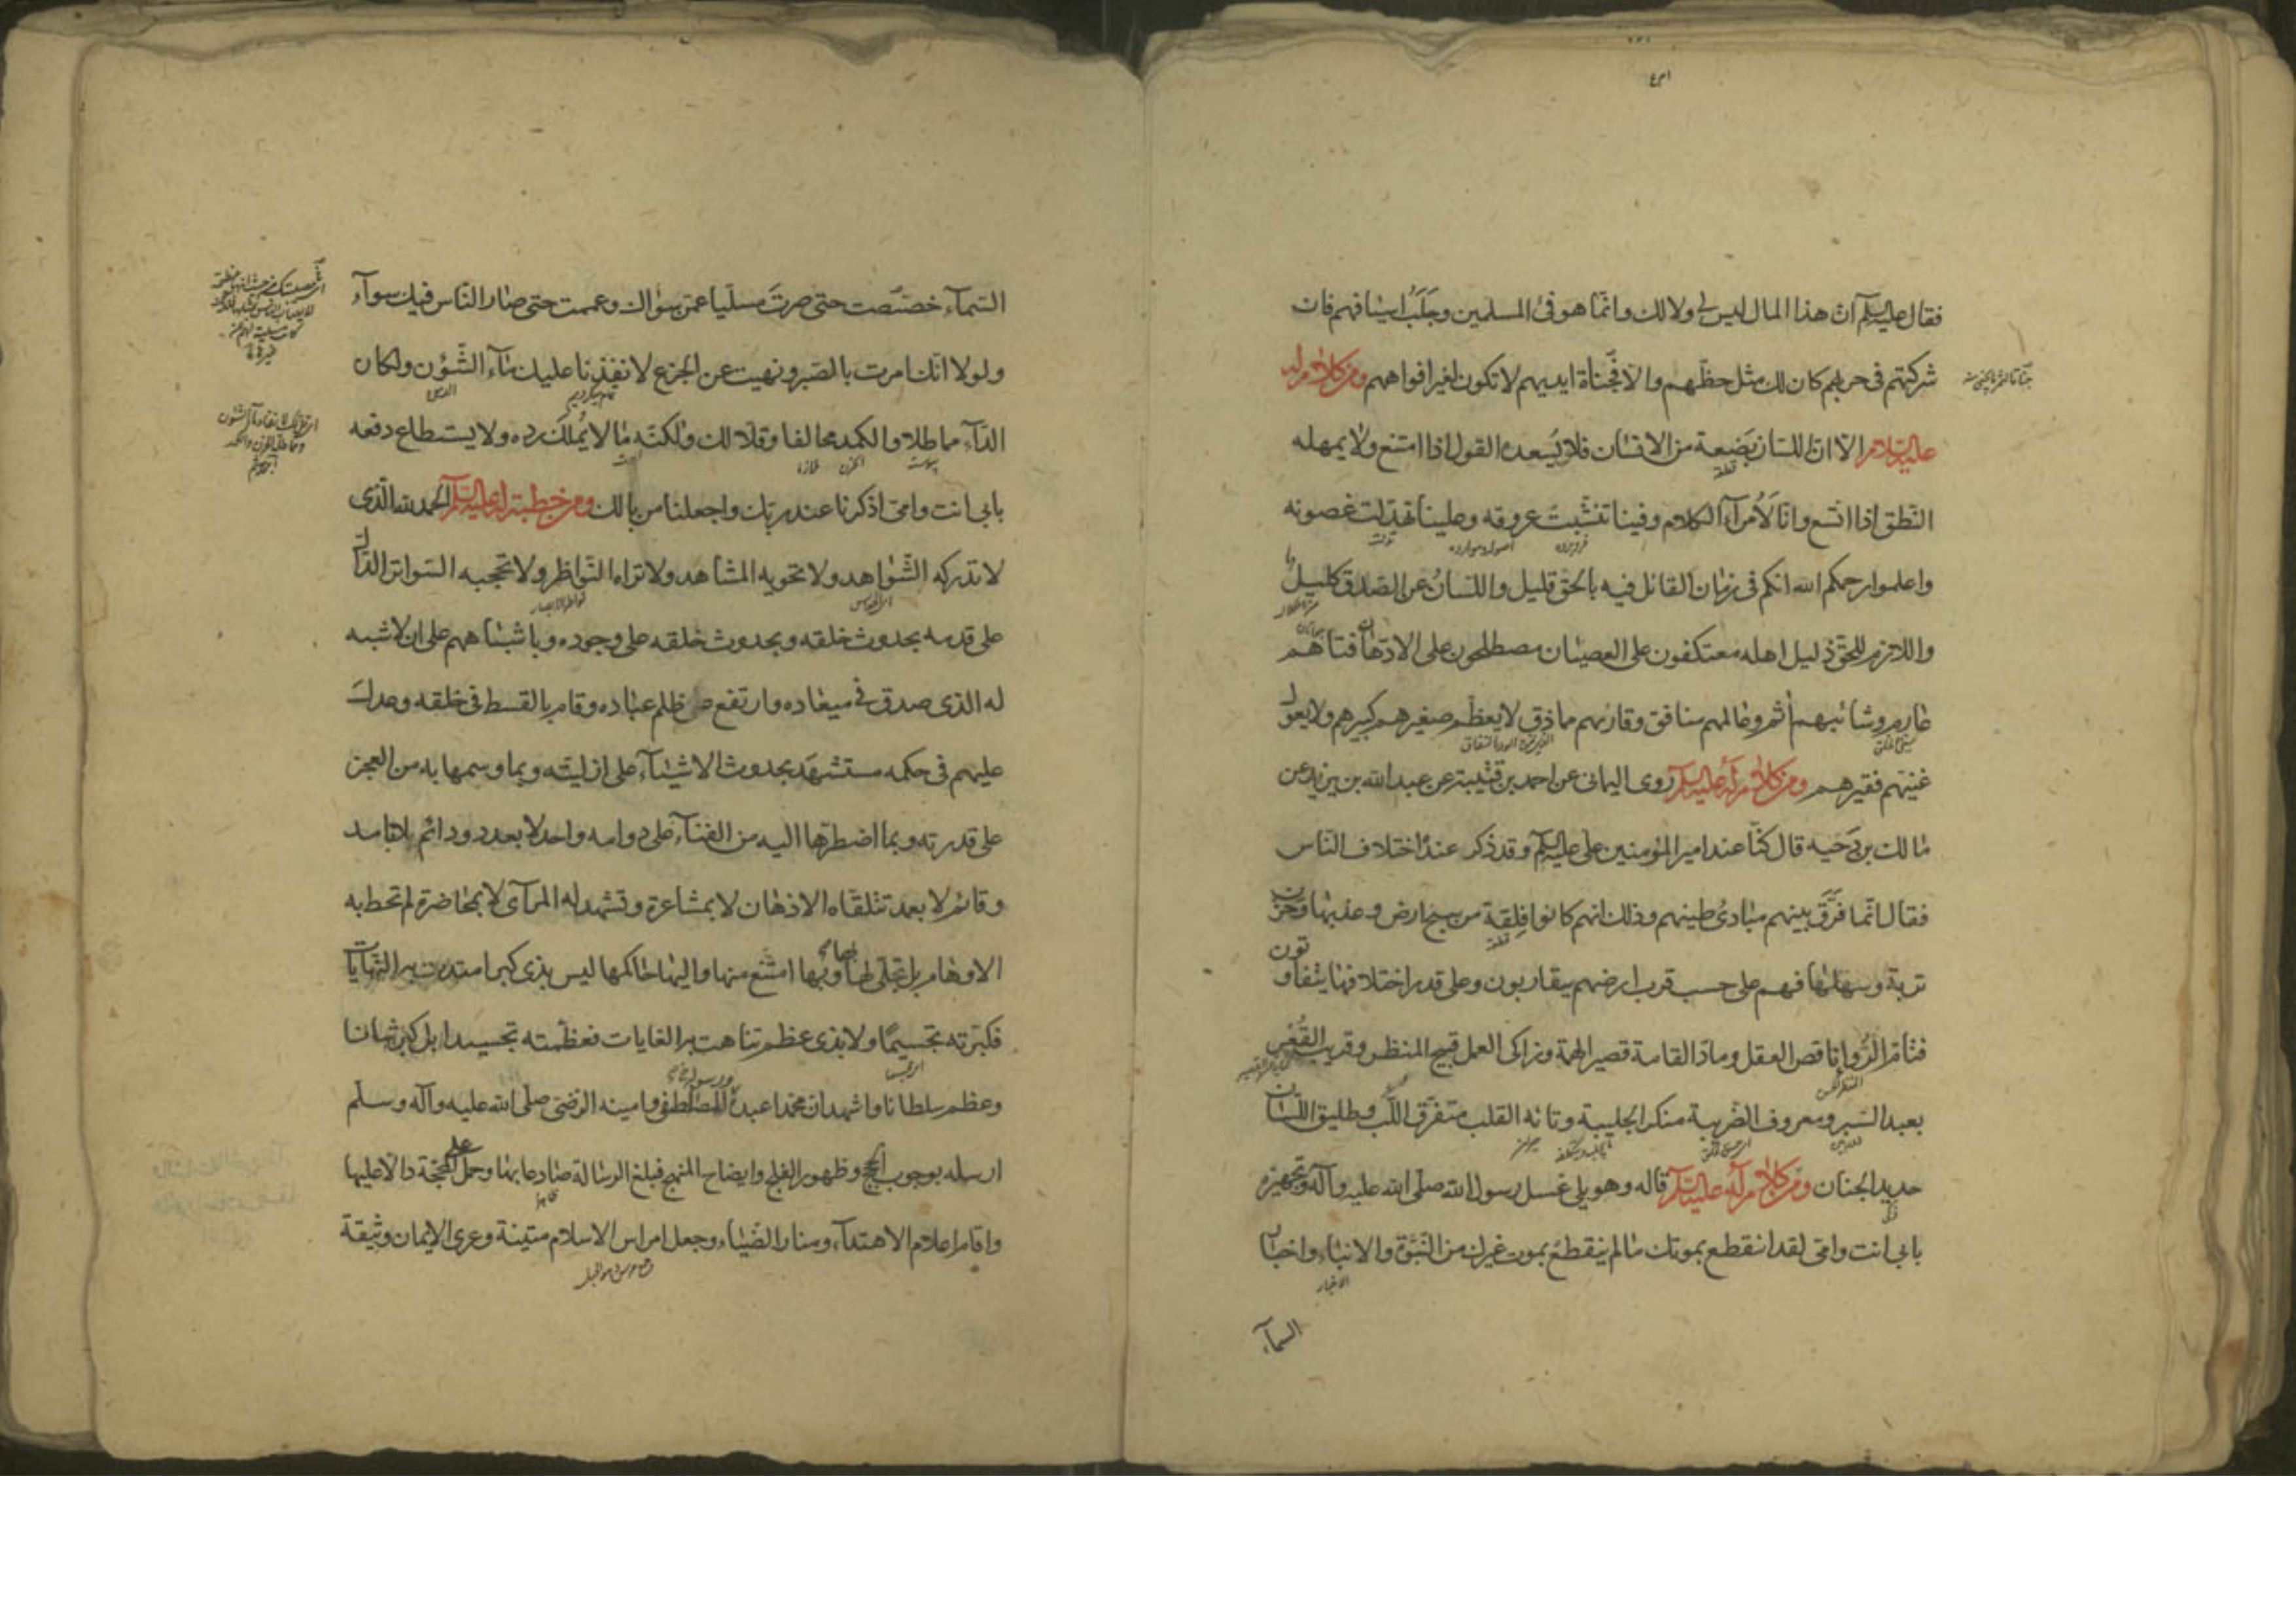 فقال عليه السلم ان هذا المال ليس لى ولا لك وانما هو فئ المسلمين وجلب اسيافهم فان
شركتهم فى حربهم كان لك مثل حظهم والا فجناة ايديهم لا تكون لغير افواههم ومن كلام له
عليه السلام الا ان اللسان بضعة من الانسان فلا يسعده القول اذا امتنع ولا يمهله
النطق اذا اتسع وانا لأمرآء الكلام وفينا تنشبت عروقه وعلينا تهدلت غصونه
واعلموا رحمكم الله انكم فى زمان القائل فيه بالحق قليل واللسان عن الصدق كليل
واللازم للحق ذليل اهله معتكفون على العصيان مصطلحون على الادهان فتاهم
عارم وشائبهم آثم وعالمهم منافق وقارئهم مماذق لا يعظم صغيرهم كبيرهم ولا يعول
غنيهم فقيرهم ومن كلام له عليه السلم روى اليمانى عن احمد بن قتيبة عن عبد الله بن يزيد عن
مالك بن دحيه قال كنا عند امير المؤمنين على عليه السلم وقد ذكر عنده اختلاف الناس
فقال انما فرق بينهم مبادى طينهم وذلك انهم كانوا فلقة من سبخ ارض وعذبها وحزن
تربة وسهلها فهم على حسب قرب ارضهم يتقاربون وعلى قدر اختلافها يتفاوتون
فتام الرواء ناقص العقل وماد القامة قصير الهمة وزاكى العمل قبيح المنظر وقريب القعر
بعيد السبر ومعروف الضريبة منكر الجليبة وتائه القلب متفرق اللب وطليق اللسان
حديد الجنان ومن كلام له عليه السلم قاله وهو يلى غسل رسول الله صلى الله عليه وآله وتجهيزه
بابى انت وامى لقد انقطع بموتك ما لم ينقطع بموت غيرك من النبوة والانباء واخبار
السمآء
السمآء خصصت حتى صرت مسليا عمن سواك وعممت حتى صار الناس فيك سوآء
ولولا انك امرت بالصبر ونهيت عن الجزع لانفذنا عليك مآء الشؤن ولكان
الدآء مماطلا والكمد محالفا وقلا لك ولكنه ما لا يملك رده ولا يستطاع دفعه
بابى انت وامى اذكرنا عند ربك واجعلنا من بالك ومن خطبة له عليه السلم الحمد لله الذى
لا تدركه الشواهد ولا تحويه المشاهد ولا تراه النواظر ولا تحجبه السواتر الدال
على قدمه بحدوث خلقه وبحدوث خلقه على وجوده وباشتباههم على ان لا شبه
له الذى صدق فى ميعاده وارتفع عن ظلم عباده وقام بالقسط فى خلقه وعدل
عليهم فى حكمه مستشهد بحدوث الاشيآء على ازليته وبما وسمها به من العجز
على قدرته وبما اضطرها اليه من الفنآء على دوامه واحد لا بعدد ودائم لا بامد
وقائم لا بعمد تتلقاه الاذهان لا بمشاعرة وتشهد له المرآى لا بمحاضرة لم تحط به
الاوهام بل تجلى لها بها وبها امتنع منها واليها حاكمها ليس بذى كبر امتدت به النهايات
فكبرته تجسيما ولا بذى عظم تناهت به الغايات فعظمته تجسيدا بل كبر شانا
وعظم سلطانا واشهد ان محمدا عبده ورسوله المصطفى وامينه الرضى صلى الله عليه وآله وسلم
ارسله بوجوب الحجج وظهور الفلج وايضاح المنهج فبلغ الرسالة صادعا بها وحمل على المحجة دالا عليها
واقام اعلام الاهتدآء ومنار الضياء وجعل امراس الاسلام متينة وعرى الايمان وثيقة